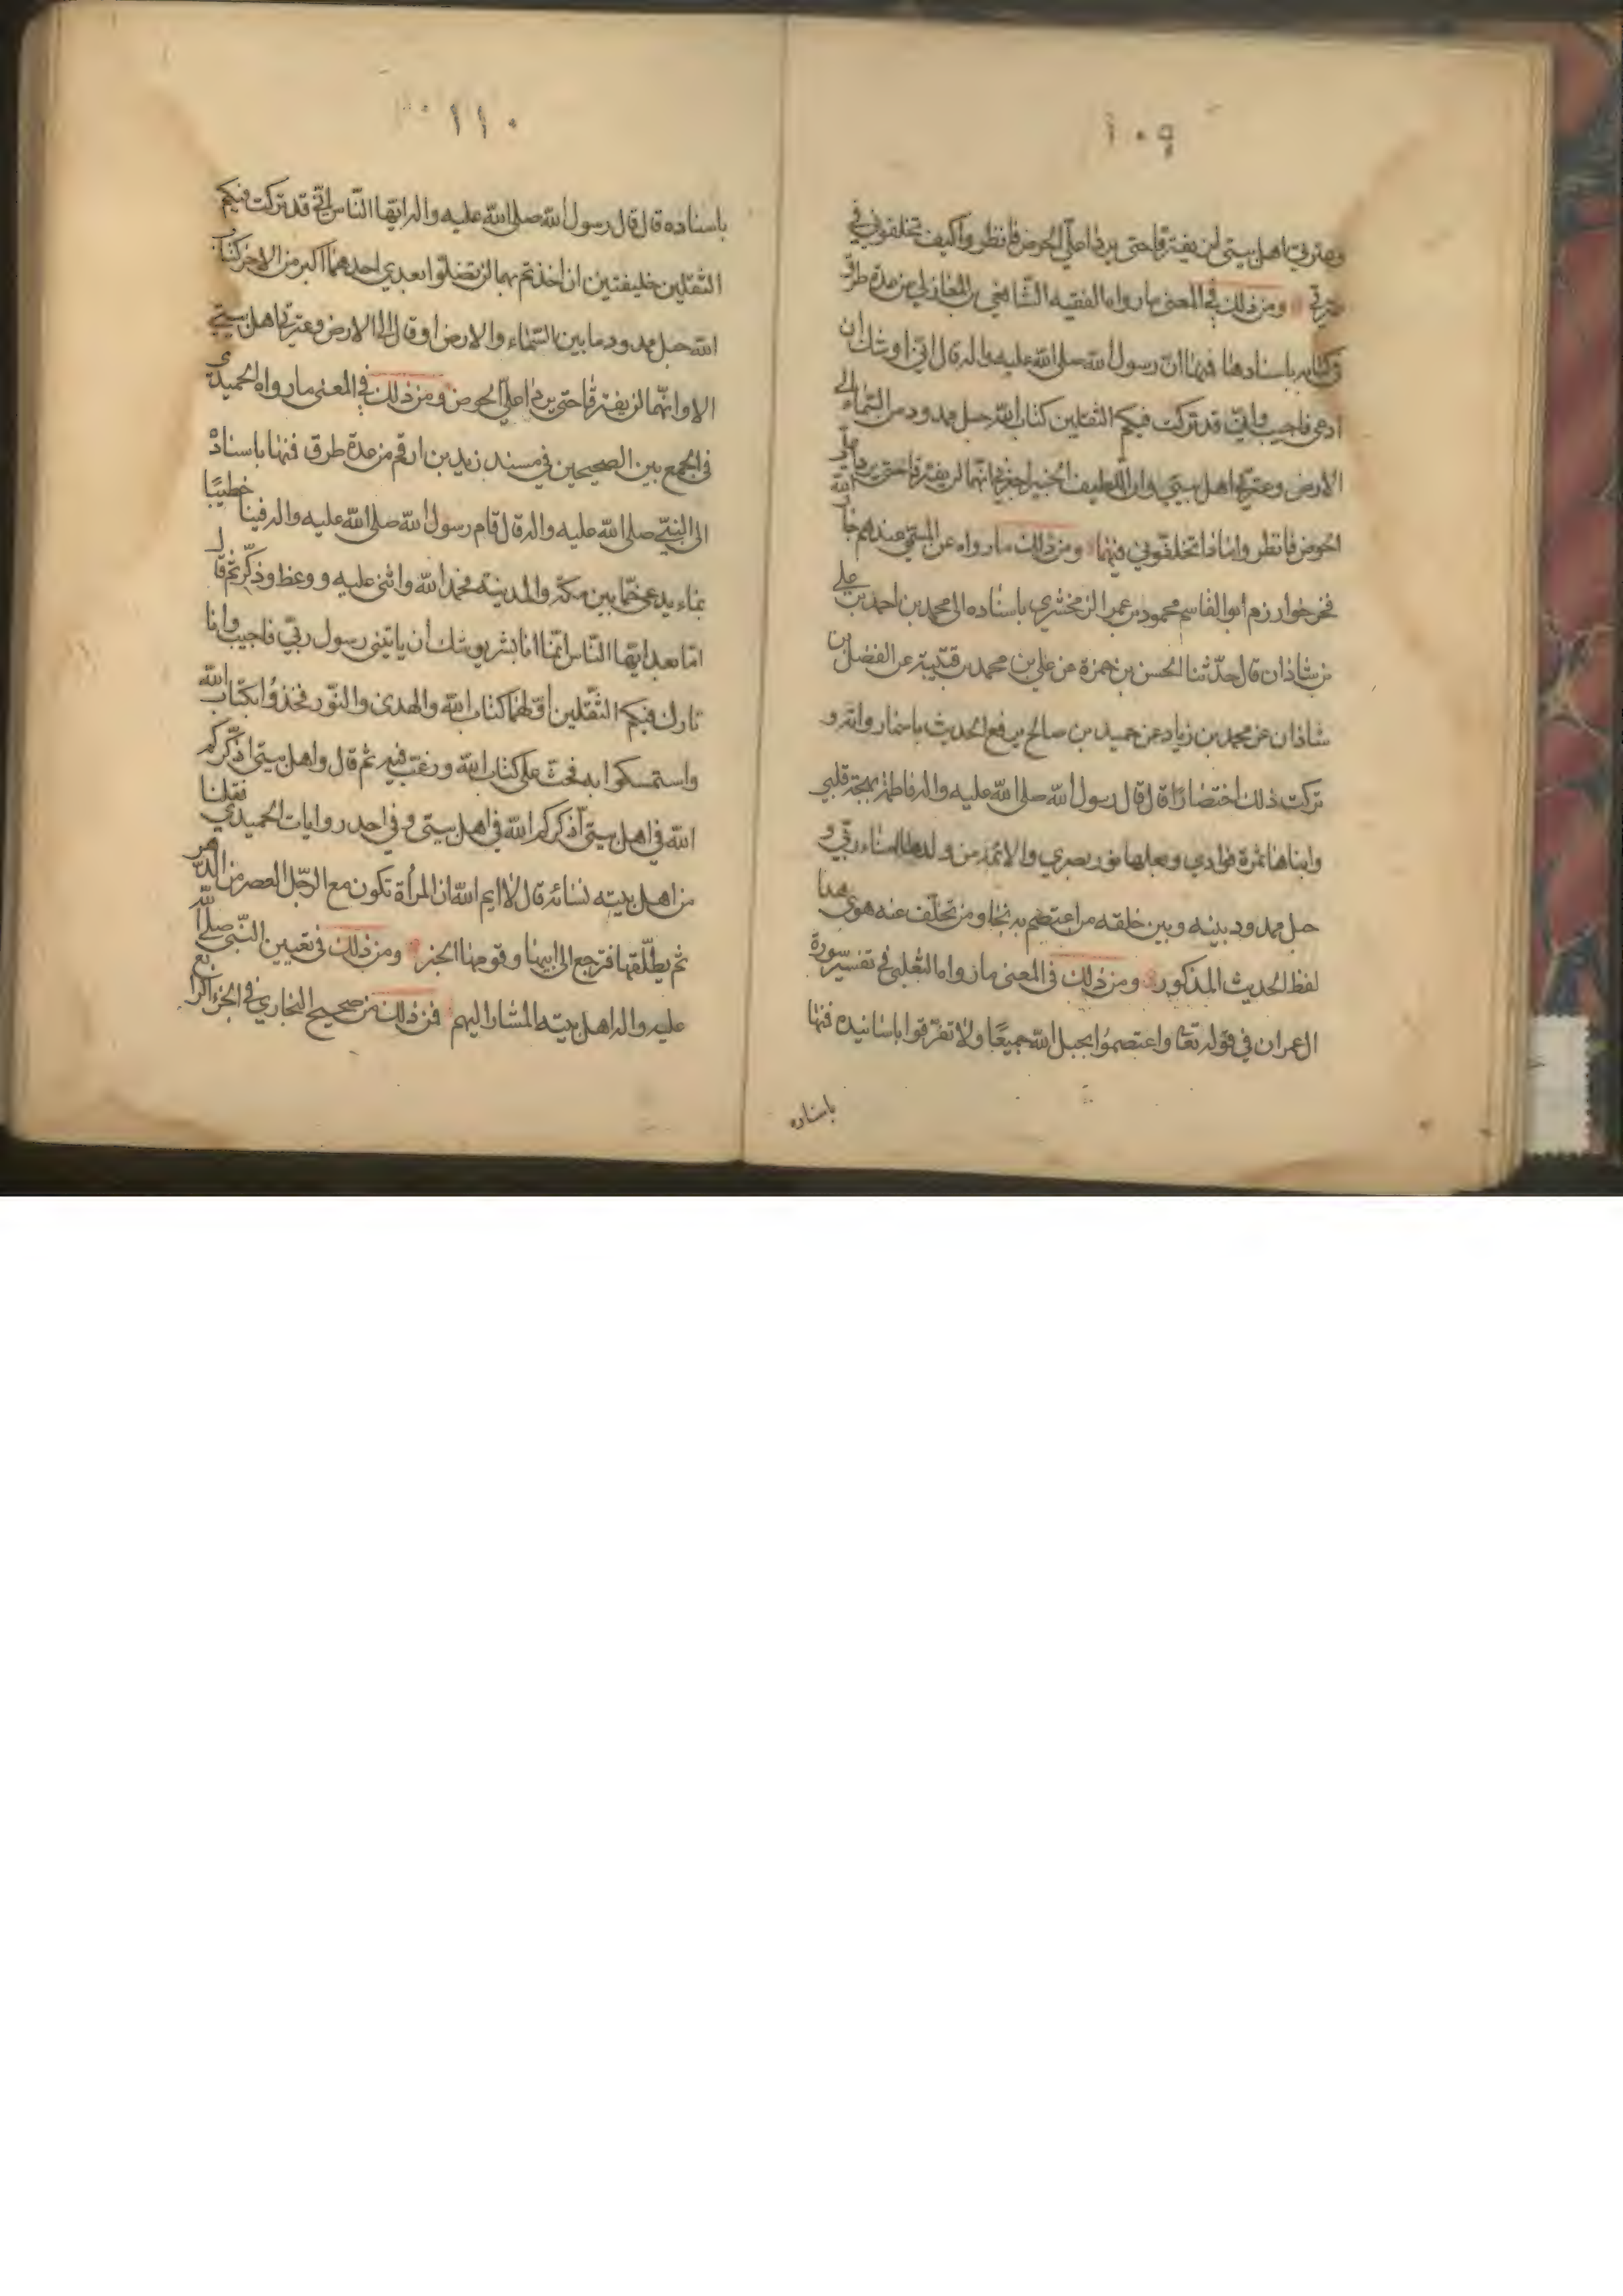 ١٠٩
وعترتي اهل بيتي لن يفترقا حتى يردا عليّ الحوض فانظروا كيف تخلفوني في
عترتي ومن ذلك في المعنى ما رواه الفقيه الشافعي بن المغازلي من عدة طرق
في كتابه باسنادها فمنها انّ رسول الله صلى الله عليه واله قال انّي اوشك ان
ادعى فاجيب وانّي قد تركت فيكم الثقلين كتاب الله حبل ممدود من السّماء الى
الارض وعترتي اهل بيتي وان اللطيف الخبير اخبرني انّهما لن يفترقا حتى يردا عليّ
الحوض فانظروا ماذا تخلفوني فيهما ومن ذلك ما رواه عن المسمّى عندهم جار الله
فخر خوارزم ابو القاسم محمود بن عمر الزمخشري باسناده الى محمد بن احمد بن علي
بن شاذان قال حدّثنا الحسن بن حمزة عن علي بن محمد بن قتيبة عن الفضل بن
شاذان عن محمد بن زياد عن حميد بن صالح يرفع الحديث باسمار واته و
تركت ذلك اختصارًا قال قال رسول الله صلى الله عليه واله فاطمة بهجة قلبي
وابناها ثمرة فؤادي وبعلها نور بصري والائمة من ولدها امناء ربّي و
حبل ممدود بينه وبين خلقه من اعتصم به نجا ومن تخلّف عنه هوى هذا
لفظ الحديث المذكور ومن ذلك في المعنى ما رواه الثعلبي في تفسير سورة
ال عمران في قوله تعا واعتصموا بحبل الله جميعًا ولا تفرّقوا باسانيده فمنها
باسناده
١١٠
باسناده قال قال رسول الله صلى الله عليه واله ايّها النّاس انّي قد تركت فيكم
الثّقلين خليفتين ان اخذتم بهما لن تضلّوا بعدي احدهما اكبر من الاخر كتاب
الله حبل ممدود ما بين السّماء والارض او قال الى الارض وعترتي اهل بيتي
الا وانّهما لن يفترقا حتى يردا عليّ الحوض ومن ذلك في المعنى ما رواه الحميدي
في الجمع بين الصحيحين في مسند زيد بن ارقم من عدة طرق فمنها باسناده
الى النبيّ صلى الله عليه واله قال قام رسول الله صلى الله عليه واله فينا خطيبًا
بماء يدعى خمّا بين مكّة والمدينة فحمد الله واثنى عليه ووعظ وذكّر ثم قال
امّا بعد ايّها النّاس انّما انا بشر يوشك ان ياتيني رسول ربّي فاجيب وانا
تارك فيكم الثّقلين اوّلهما كتاب الله والهدى والنّور فخذوا بكتاب الله
واستمسكوا به فحثّ على كتاب الله ورغّب فيه ثم قال واهل بيتي اذكّركم
الله في اهل بيتي اذكركم الله في اهل بيتي وفي احد روايات الحميدي فقلنا
من اهل بيته نسائه قال لا ايم الله ان المرأة تكون مع الرّجل العصر من الدّهر
ثم يطلّقها فترجع الى ابيها وقومها الخبر ومن ذلك في تعيين النّبي صلى الله
عليه واله اهل بيته المشار اليهم فمن ذلك من صحيح البخاري في الجزء الرابع